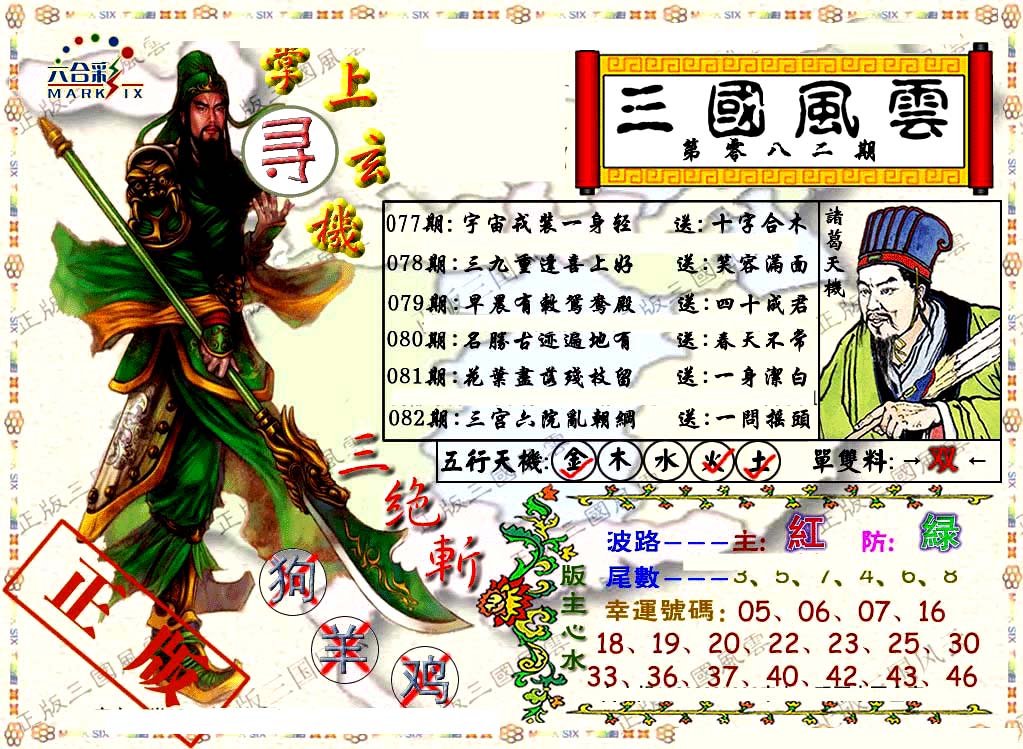 六合彩
MARK SIX
掌上玄機
尋
三國風雲
第零八二期
077期:宇宙戎裝一身轻 送:十字合木
078期:三九重逢喜上好 送:笑容滿面
079期:早晨有穀鴛鴦殿 送:四十成君
080期:名勝古迹遍地有 送:春天不常
081期:花葉盡落殘枝留 送:一身潔白
082期:三宫六院亂朝綱 送:一問摇頭
諸葛天機
五行天機:金木水火土 單雙料:→双←
三绝斬
狗
羊
鸡
正版
版主心水
波路---主:紅 防:緑
尾數---3、5、7、4、6、8
幸運號碼:05、06、07、16
18、19、20、22、23、25、30
33、36、37、40、42、43、46